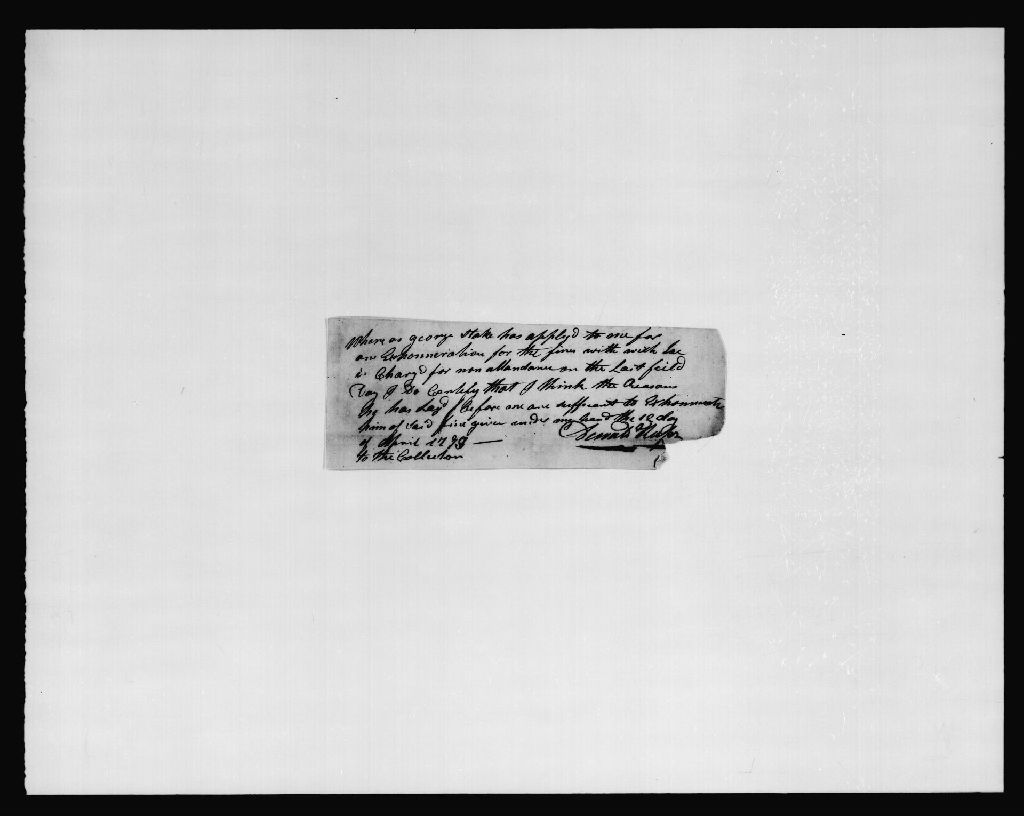 Where as george Stake has applyd to me for
an Exhonneration for the fines with with he
is Chargd for non attendance on the Last feild
Day I Do Certify that I think the Reasons
he has Layd before me are sufficient to Exhonnerate
him of said fine given under my hand the 10 day
of April 1793
to the Collector